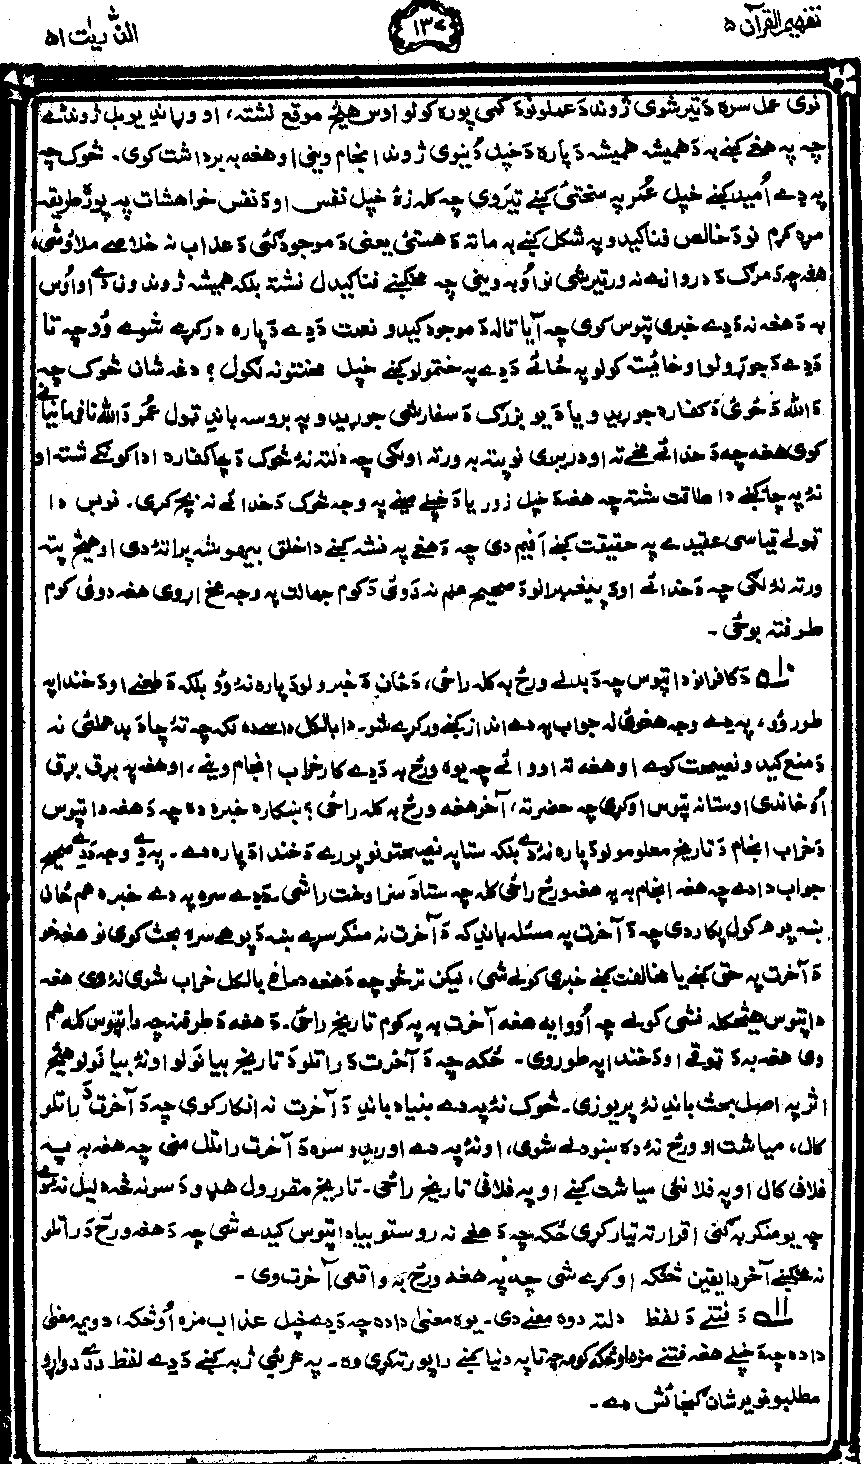 تفهیم القرآن ۵
۱۳۷
الذّٰریٰت ۵۱
نوی عمل سره دَ تیر شوی ژوند دَ عملونو دَ کمی پوره کولو اوس هیڅ موقع نشته، او وړاندې یو بل ژوند شته
چه په هغې کښې به دَ همیشه همیشه دَپاره دَ خپل دُنیوی ژوند انجام وینی او هغه به برداشت کوی. څوک چه
په دے اُمید کښې خپل عُمر په سختئ کښې تیروی چه کله زۀ خپل نفس او دَ نفس خواهشات په پوره طریقه
مړۀ کړم نو دَ خالص فنا کیدو په شکل کښې به ما ته دَ هستئ یعنی دَ موجودګئ دَ عذاب نه خلاصے ملاؤ شی،
هغه چه دَ مرګ دَ دروازے نه ور تیر شی نو اُو به وینی چه مخکښې فنا کیدل نشته بلکه همیشه ژوندون دے او اُوس
به دَ هغه نه دَ دے خبرې تپوس کوی چه آیا تا له دَ موجود کیدو نعمت دَ دے دَپاره درکړے شوے وُو چه تا
دَ دے دَ جوړولو او ښائسته کولو په ځائے دَ دے په ختمولو کښې خپل محنتونه لګول؟ دغه شان څوک چه
دَ الله دَ ځوئ دَ کفاره جوړیدو یا دَ یو بزرګ دَ سفارشی جوړیدو په بروسه باندې ټول عُمر دَ الله نافرمانیانې
کوی هغه چه دَ خدائے مخے ته اودریږی نو پته به ورته اولګی چه دلته نۀ څوک دَ چا کفاره ادا کونکے شته او
نۀ په چا کښې دا طاقت شته چه هغه دَ خپل زور یا دَ خپلے مینے په وجه څوک دَ خدائے نه بچ کړی. نو بس دا
ټولے قیاسی عقیدے په حقیقت کښې افیم دی چه دَ هغے په نشه کښې دا خلق بیهوشه پراتۀ دی او هیڅ پته
ورته نۀ لګی چه دَ خدائے او دَ پیغمبرانو دَ صحیح علم نه دَ دوئ دَ کوم جهالت په وجه مخ اړوی هغه دوئ کوم
طرف ته بوځی -
۱۰ دَ کافرانو دا تپوس چه دَ بدلے ورځ به کله راځی، دَ ځان دَ خبرولو دَپاره نۀ وُو بلکه دَ طعنے او دَ خندا په
طور وُو، په دے وجه هغوئ له جواب په دے انداز کښې ورکړے شو۔ دا بالکل داسے ده لکه چه تۀ چا دَ بد عملئ نه
دَ منع کیدو نصیحت کوے او هغه ته اووائے چه یوه ورځ به دَ دے کار خراب انجام وینے، او هغه په برق برق
اُو خاندی او ستا نه تپوس اوکړی چه حضرته، آخر هغه ورځ به کله راځی؟ ښکاره خبره ده چه دَ هغه دا تپوس
دَ خراب انجام دَ تاریخ معلومولو دَپاره نۀ دے بلکه ستا په نصیحتونو پورے دَ خندا دَپاره دے۔ په دے وجه دَ دے صحیح
جواب دا دے چه هغه انجام به په هغه ورځ راځی کله چه ستا دَ سزا وخت راشی۔ دَ دے سره په دے خبره هم ځان
ښه پوهه کول پکار دی چه دَ آخرت په مسئله باندې که دَ آخرت نه منکر سړے ښه دَ پوهے سره بحث کوی نو هغه خو
دَ آخرت په حق کښې یا مخالفت کښې خبرې کولے شی، لیکن تر څو چه دَ هغه دماغ بالکل خراب شوی نۀ وی هغه
دا تپوس هیڅکله نشی کولے چه اُووایه هغه آخرت به په کوم تاریخ راځی۔ دَ هغه دَ طرف نه چه دا تپوس کله هم
وی هغه به دَ ټوقے او دَ خندا په طور وی۔ ځکه چه دَ آخرت دَ راتلو دَ تاریخ بیانولو او نۀ بیانولو هیڅ
اثر په اصل بحث باندې نۀ پریوزی۔ څوک نۀ په دے بنیاد باندې دَ آخرت نه انکار کوی چه دَ آخرت دَ راتلو
کال، میاشت او ورځ نۀ ده ښودلے شوی، او نۀ په دے اوریدو سره دَ آخرت راتلل منی چه هغه به په
فلانی کال او په فلانئ میاشت کښې او په فلانی تاریخ راځی۔ تاریخ مقررول هډو دَ سره نه څه دلیل نۀ دے
چه یو منکر به کنی اقرار ته تیار کړی ځکه چه دَ هغے نه روستو بیا دا تپوس کیدے شی چه دَ هغه ورځ دَ راتلو
نه مخکښې آخر دا یقین څنګه اوکړے شی چه په هغه ورځ به واقعی آخرت وی۔
۱۱ دَ فتنے دَ لفظ دلته دوه معنے دی۔ یوه معنیٰ دا ده چه دَ دے خپل عذاب مزه اُوڅکه، دویمه معنیٰ
دا ده چه دَ خپلے هغه فتنے مزه اُوڅکه کومه چه تا په دنیا کښې راپورته کړی وه۔ په عربئ ژبه کښې دَ دے لفظ دَ دے دواړو
مطلبونو یو شان ګنجائش دے۔